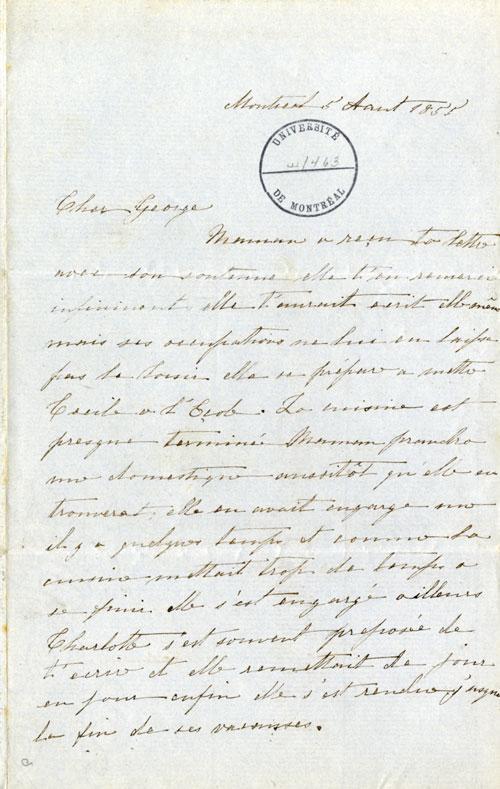 Montreal 5 Aout 1855
UNIVERSITÉ
1463
DE MONTRÉAL
Cher George
Maman a reçu ta lettre
avec son contenue elle t'en remerci
infiniment, elle t'aurait ecrit elle meme
mais ses occupations ne lui en laisse
pas le loisir elle se prépare a mettre
Cecile a l'Ecole. La cuisine est
presque terminée Maman prendra
une domestique aussitôt qu'elle en
trouverat, elle en avait engargé une
il y a quelques temps et comme la
cuisine mettait trop de temps a
se finir elle s'est engargé ailleurs
Charlotte s'est souvent proposée de
t'ecrire et elle remettait de jour
en jour enfin elle s'est rendue jusqua
la fin de ses vacansses.